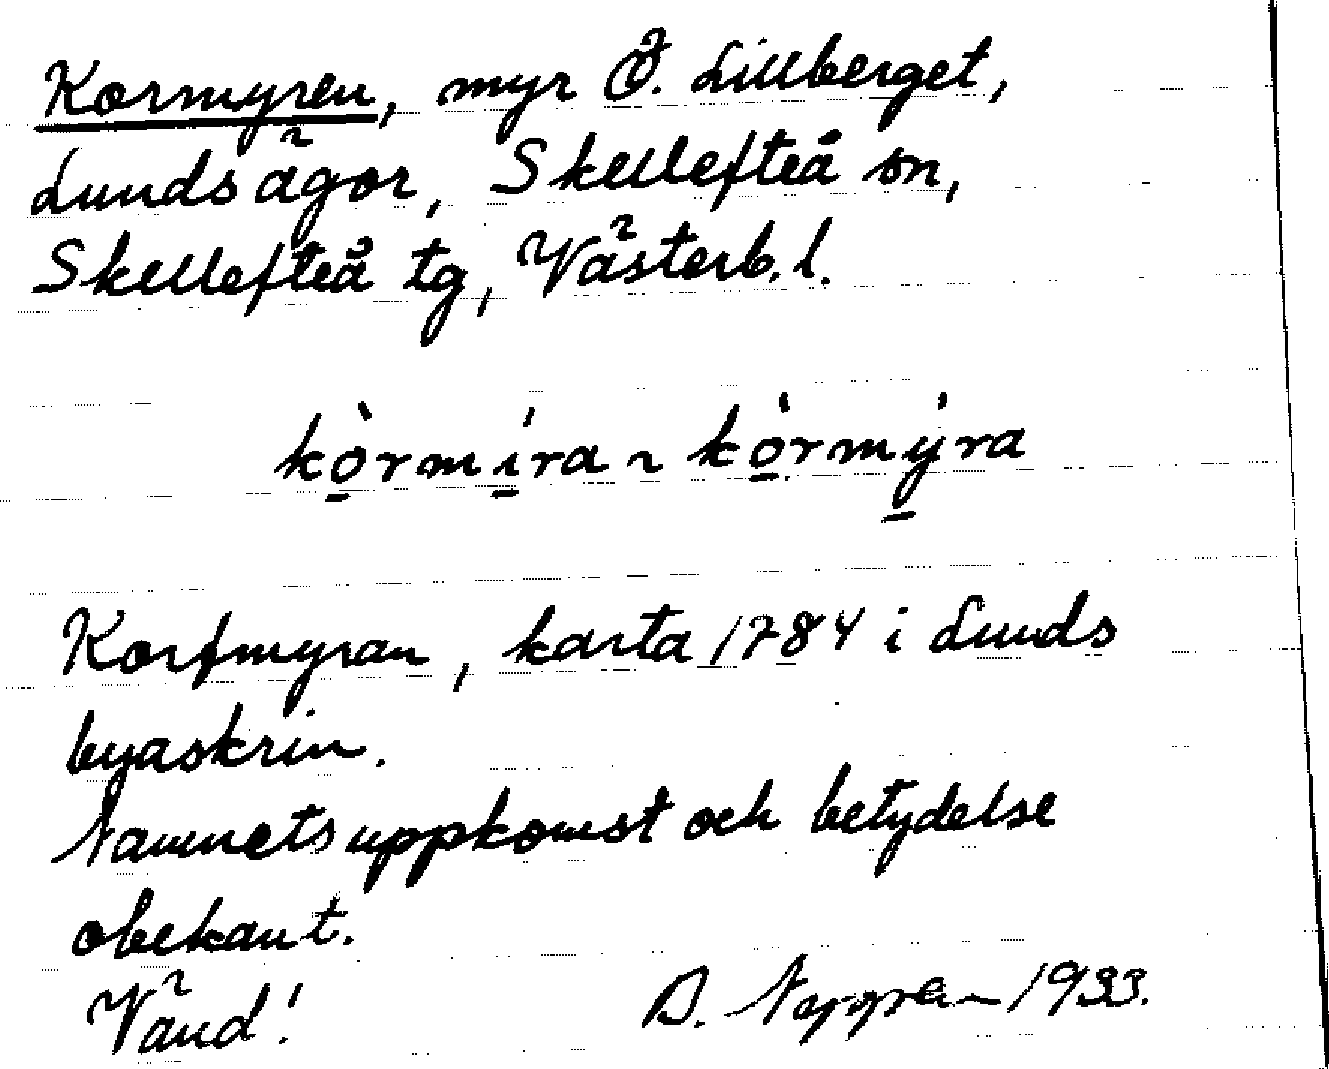 Kormyren, myr Ö. Lillberget,
Lunds ägor, Skellefteå sn,
Skellefteå tg, Västerb. l.
kòrmíra ~ kòrmýra
Korfmyran, karta 1784 i Lunds
byaskrin.
Namnets uppkomst och betydelse
obekant.
Vänd! 1933.